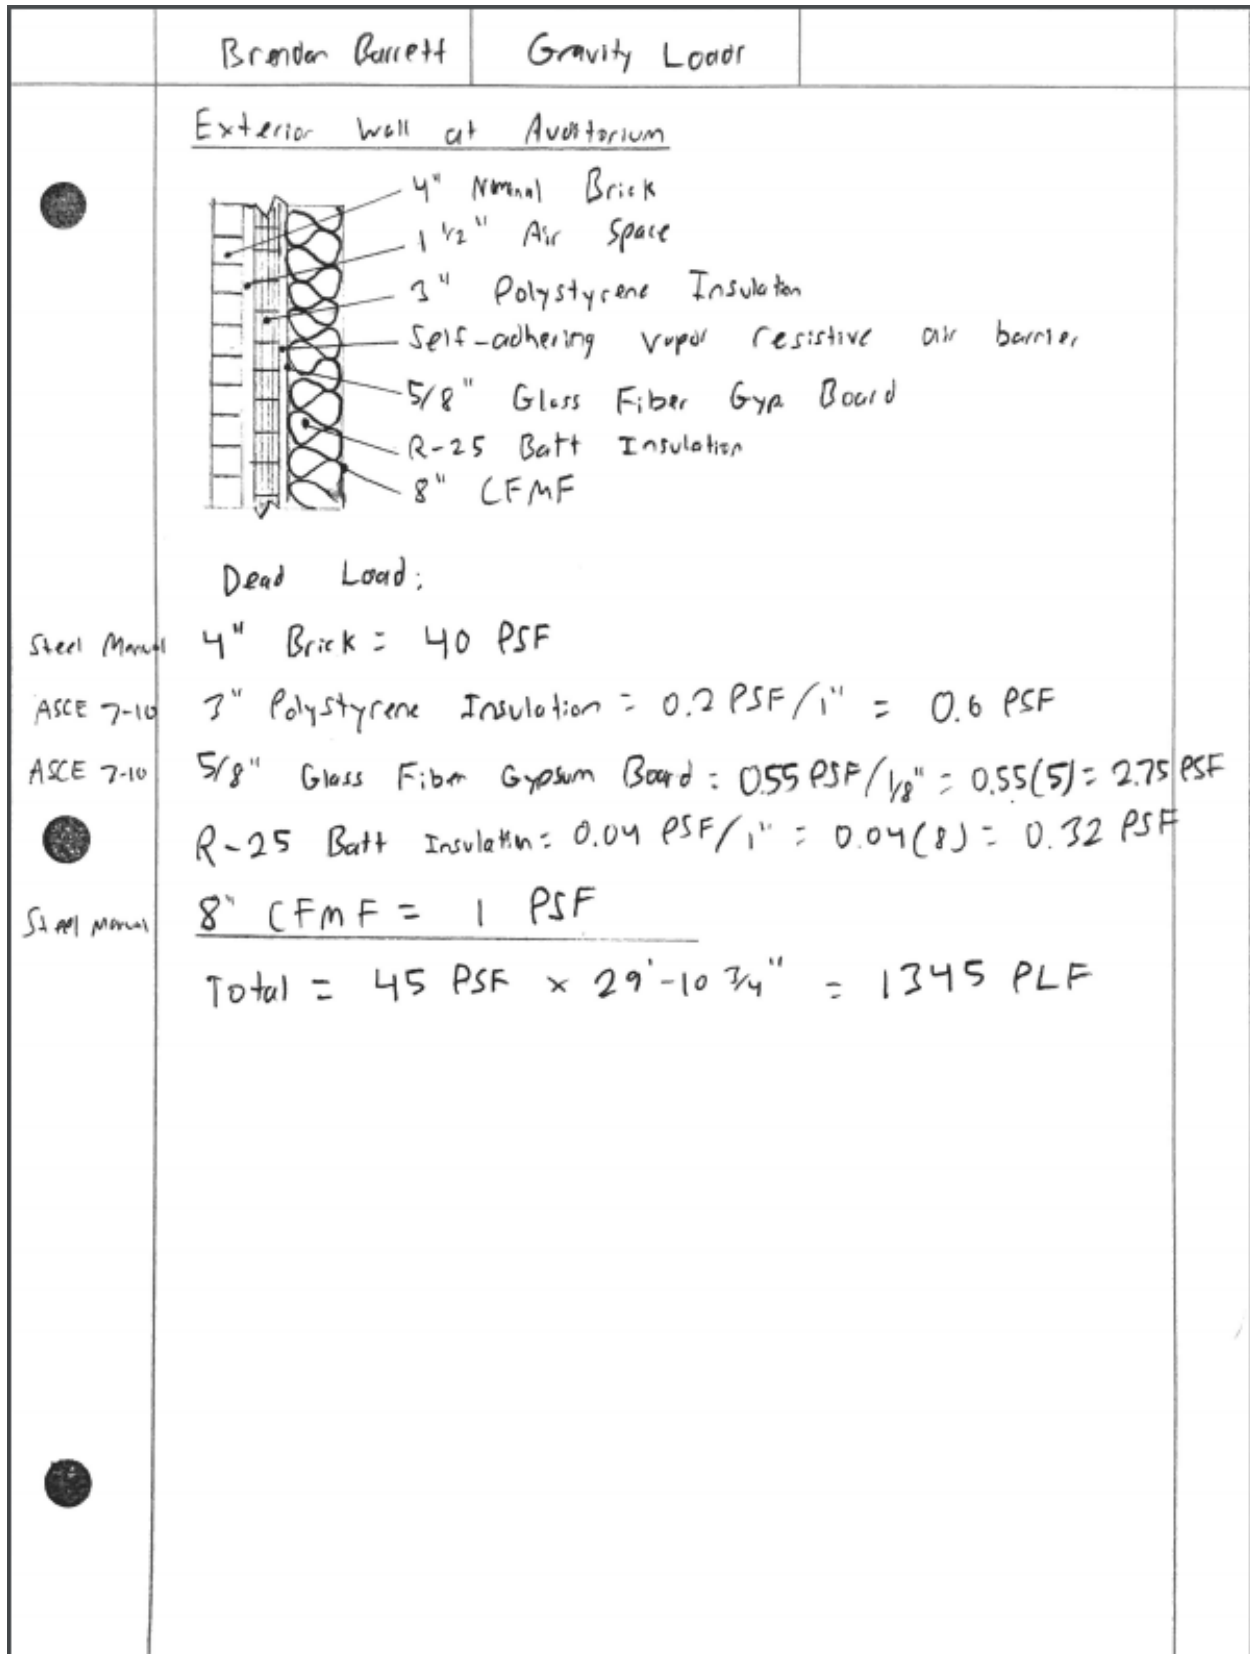 Brendan Barrett Gravity Loads
Exterior Wall at Auditorium
4" Nominal Brick
1 1/2" Air Space
3" Polystyrene Insulation
Self-adhering vapor resistive air barrier
5/8" Glass Fiber Gyp. Board
R-25 Batt Insulation
8" CFMF
Dead Load:
Steel Manual 4" Brick = 40 PSF
ASCE 7-10 3" Polystyrene Insulation = 0.2 PSF/1" = 0.6 PSF
ASCE 7-10 5/8" Glass Fiber Gypsum Board = 0.55 PSF/1/8" = 0.55(5) = 2.75 PSF
R-25 Batt Insulation = 0.04 PSF/1" = 0.04(8) = 0.32 PSF
Steel Manual 8" CFMF = 1 PSF
Total = 45 PSF × 29'-10 3/4" = 1345 PLF